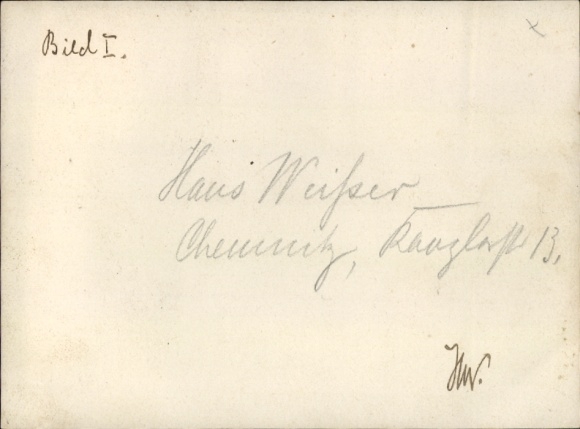 Bild I.
Hans Weißer
Chemnitz, Kanzlerst 13.
HW.